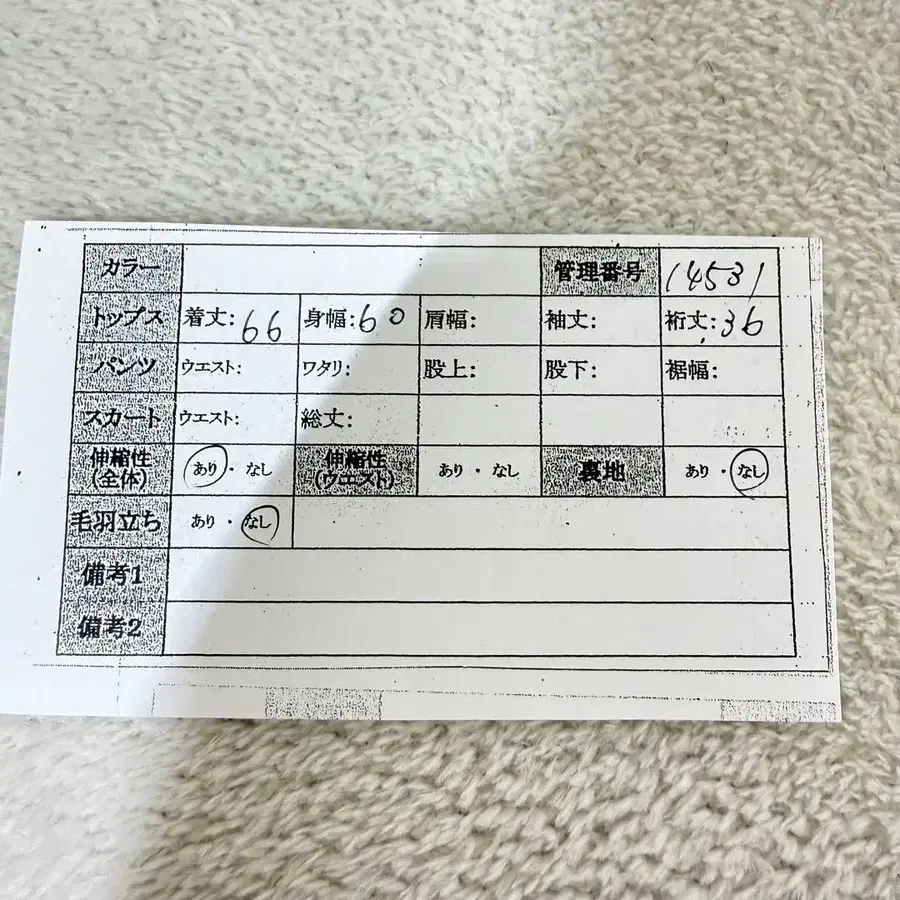 カラー 管理番号 14531
トップス 着丈: 66 身幅: 60 肩幅: 袖丈: 裄丈: 36
パンツ ウエスト: ワタリ: 股上: 股下: 裾幅:
スカート ウエスト: 総丈:
伸縮性(全体) あり・なし 伸縮性(ウエスト) あり・なし 裏地 あり・なし
毛羽立ち あり・なし
備考1
備考2